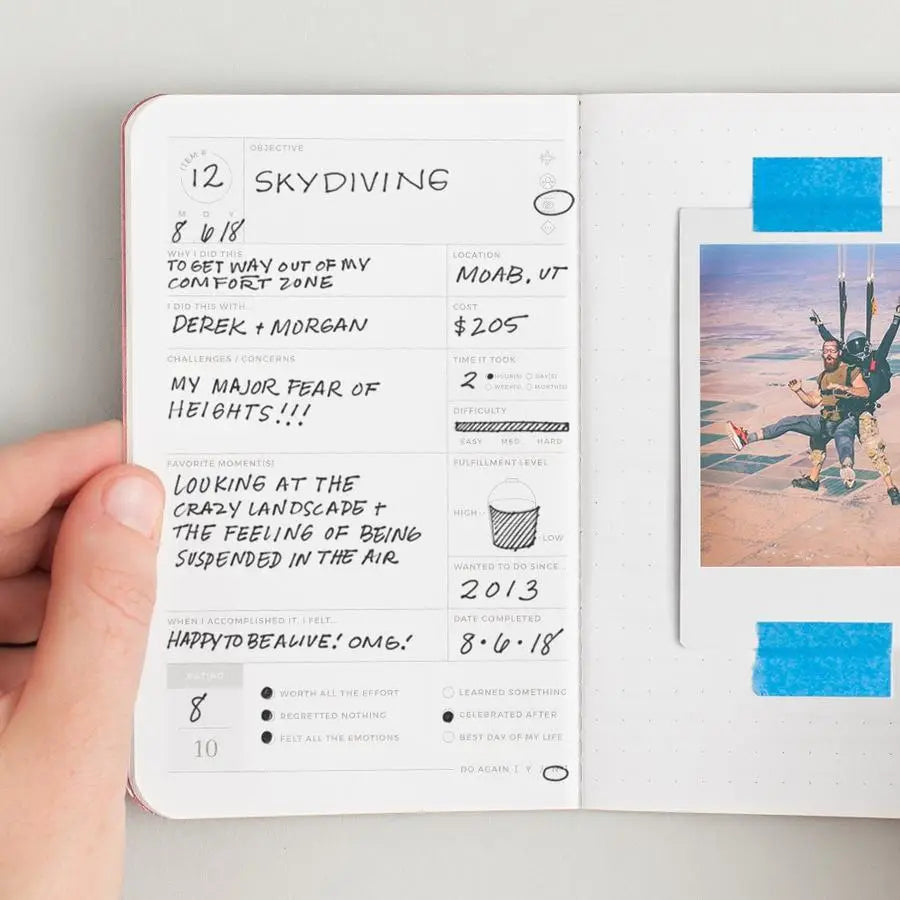 ITEM #
12
OBJECTIVE
SKYDIVING
M D Y
8 6 18
WHY I DID THIS
TO GET WAY OUT OF MY
COMFORT ZONE
LOCATION
MOAB, UT
I DID THIS WITH...
DEREK + MORGAN
COST
$205
CHALLENGES / CONCERNS
MY MAJOR FEAR OF
HEIGHTS!!!
TIME IT TOOK
2 HOUR(S) DAY(S)
WEEK(S) MONTH(S)
DIFFICULTY
EASY MED HARD
FAVORITE MOMENT(S)
LOOKING AT THE
CRAZY LANDSCAPE +
THE FEELING OF BEING
SUSPENDED IN THE AIR
FULFILLMENT LEVEL
HIGH
LOW
WANTED TO DO SINCE...
2013
WHEN I ACCOMPLISHED IT, I FELT...
HAPPY TO BE ALIVE! OMG!
DATE COMPLETED
8·6·18
RATING
8
10
WORTH ALL THE EFFORT
REGRETTED NOTHING
FELT ALL THE EMOTIONS
LEARNED SOMETHING
CELEBRATED AFTER
BEST DAY OF MY LIFE
DO AGAIN [ Y / N ]